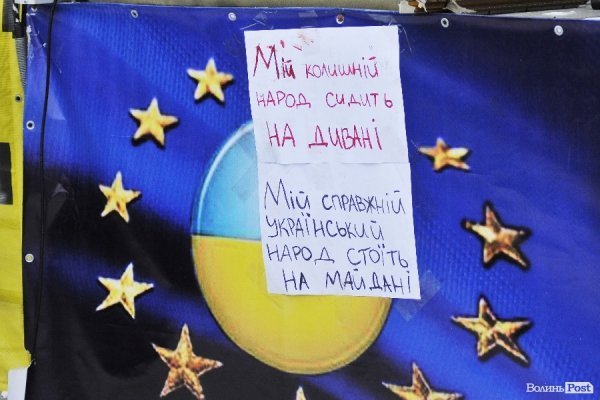 Мій колишній
народ сидить
на дивані
Мій справжній
український
народ стоїть
на майдані
ВолиньPost